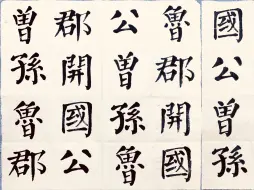 國公曾孫
魯郡開國
公曾孫魯
郡開國公
曾孫魯郡